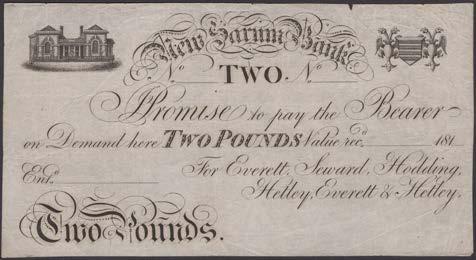 New Sarum Bank
No TWO. No
I Promise to pay the Bearer
on Demand here TWO POUNDS Value recd 181
Entd For Everett, Seward, Hodding,
Hetley, Everett & Hetley.
Two Pounds.